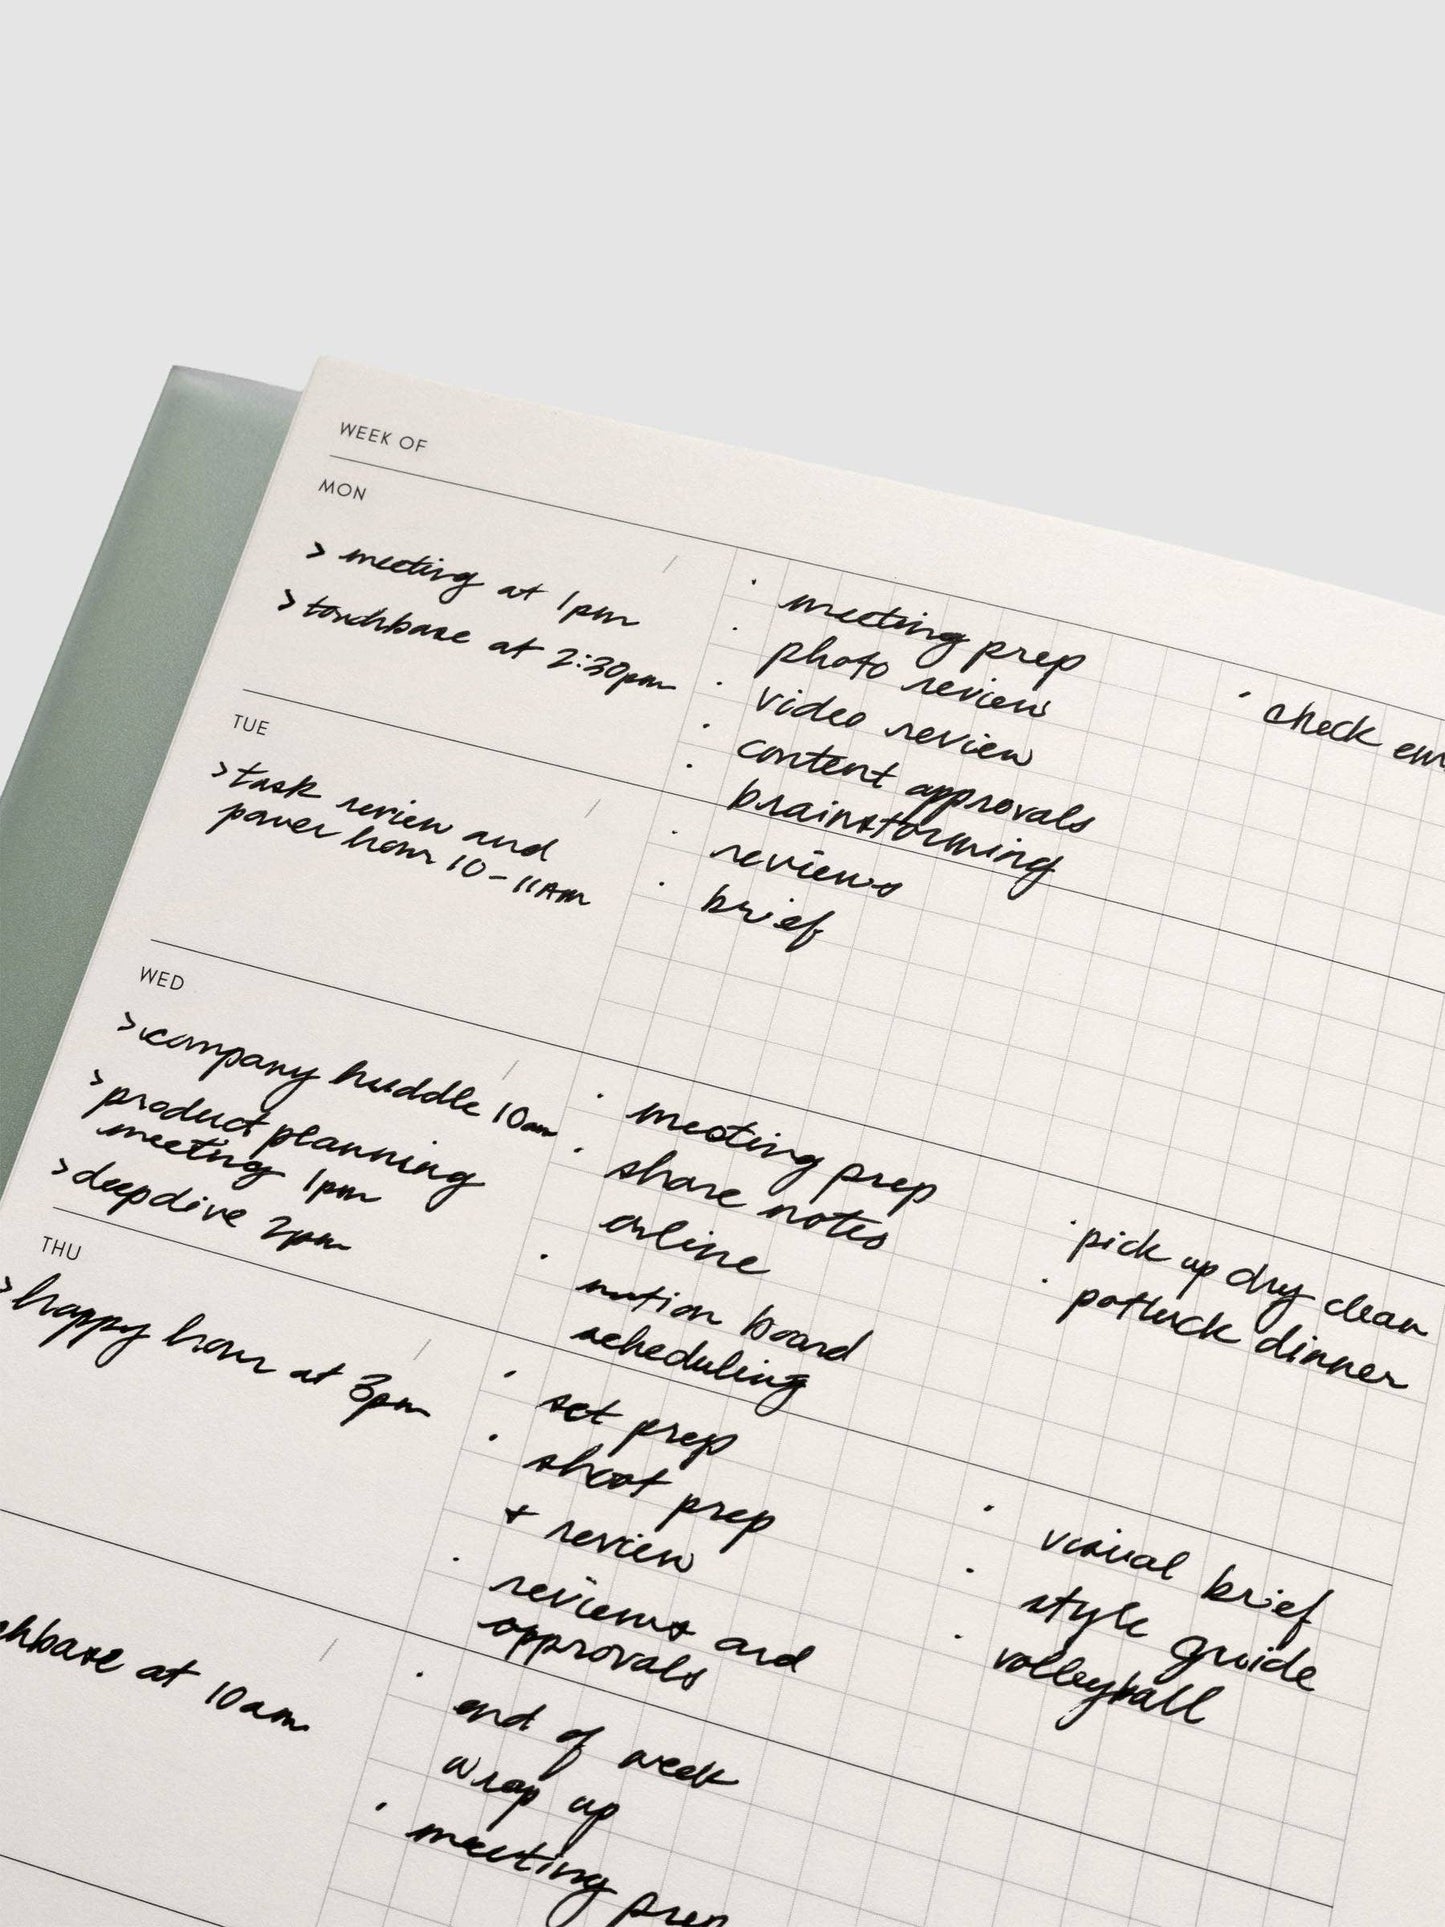 WEEK OF
MON
> meeting at 1pm
> touchbase at 2:30pm
• meeting prep
• photo review
• video review
• content approvals
• brainstorming
• reviews
• brief
• check
TUE
> task review and
power hour 10-11AM
WED
> company huddle 10am
> product planning
meeting 1pm
> deepdive 2pm
• meeting prep
• share notes
online
• motion board
scheduling
• pick up dry clean
• potluck dinner
THU
> happy hour at 3pm
• set prep
• shoot prep
+ review
• reviews and
approvals
• visual brief
• style guide
• volleyball
chbase at 10am
• end of week
wrap up
• meeting prep